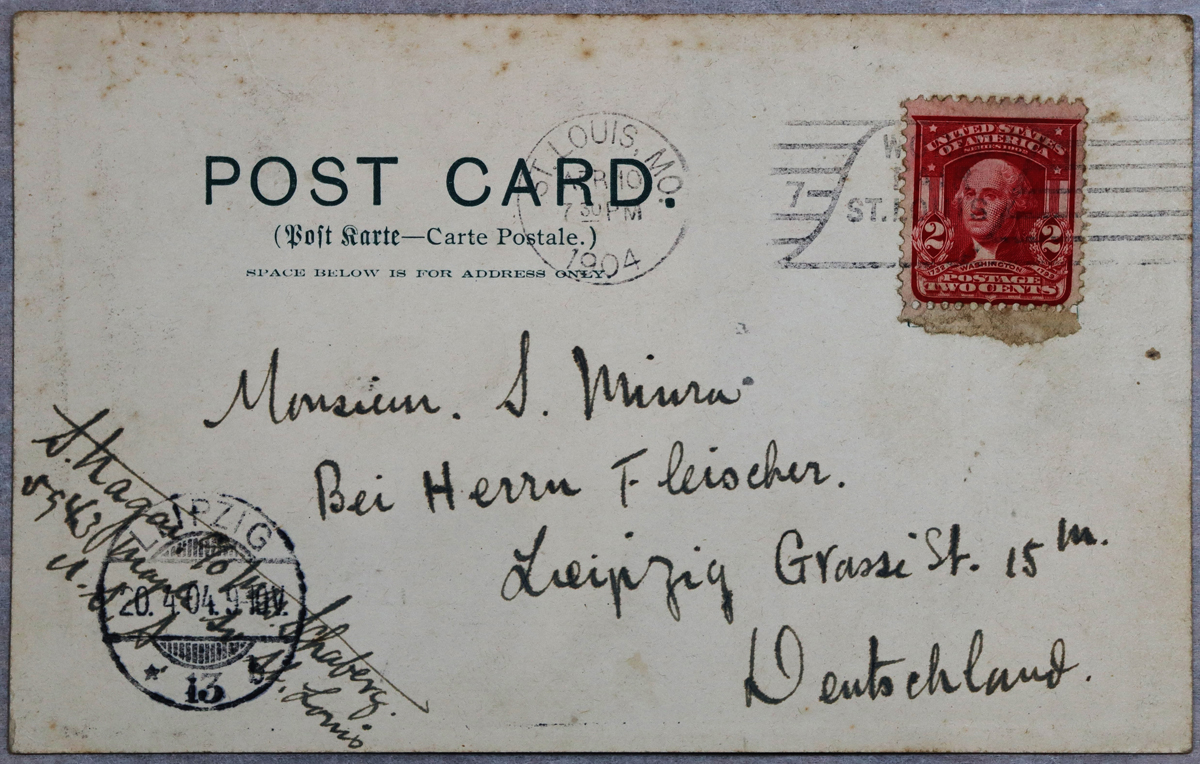 POST CARD.
(Post Karte—Carte Postale.)
SPACE BELOW IS FOR ADDRESS ONLY.
ST. LOUIS, MO.
APR 10
7 30 PM
1904
7
ST.
UNITED STATES
OF AMERICA
SERIES 1902
2 2
WASHINGTON
POSTAGE
TWO CENTS
Monsieur. S. Miura
Bei Herrn Fleischer.
Leipzig Grassi St. 15 III.
Deutschland.
S. Nagai
Schaberg.
St. Louis
U. S. A
LEIPZIG
20. 4. 04. 9-10V.
* 13